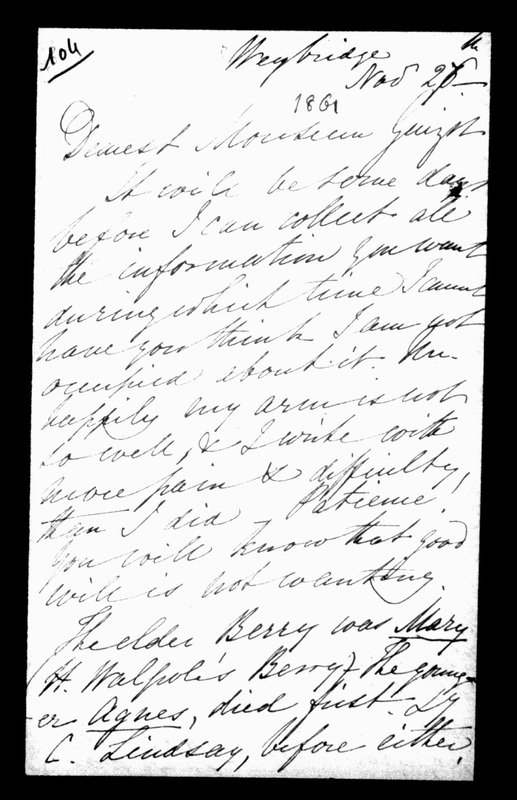 104
Weybridge
Nov 26th
1861
Dearest Monsieur Guizot
It will be some days
before I can collect all
the information you want
during which time I cannot
have you think I am not
occupied about it. Un-
happily my arm is not
so well, & I write with
more pain & difficulty,
than I did Patience.
You will know that good
will is not wanting.
The elder Berry was Mary
(H. Walpole's Berry) The young-
er Agnes, died first. Ly
C. Lindsay, before either,